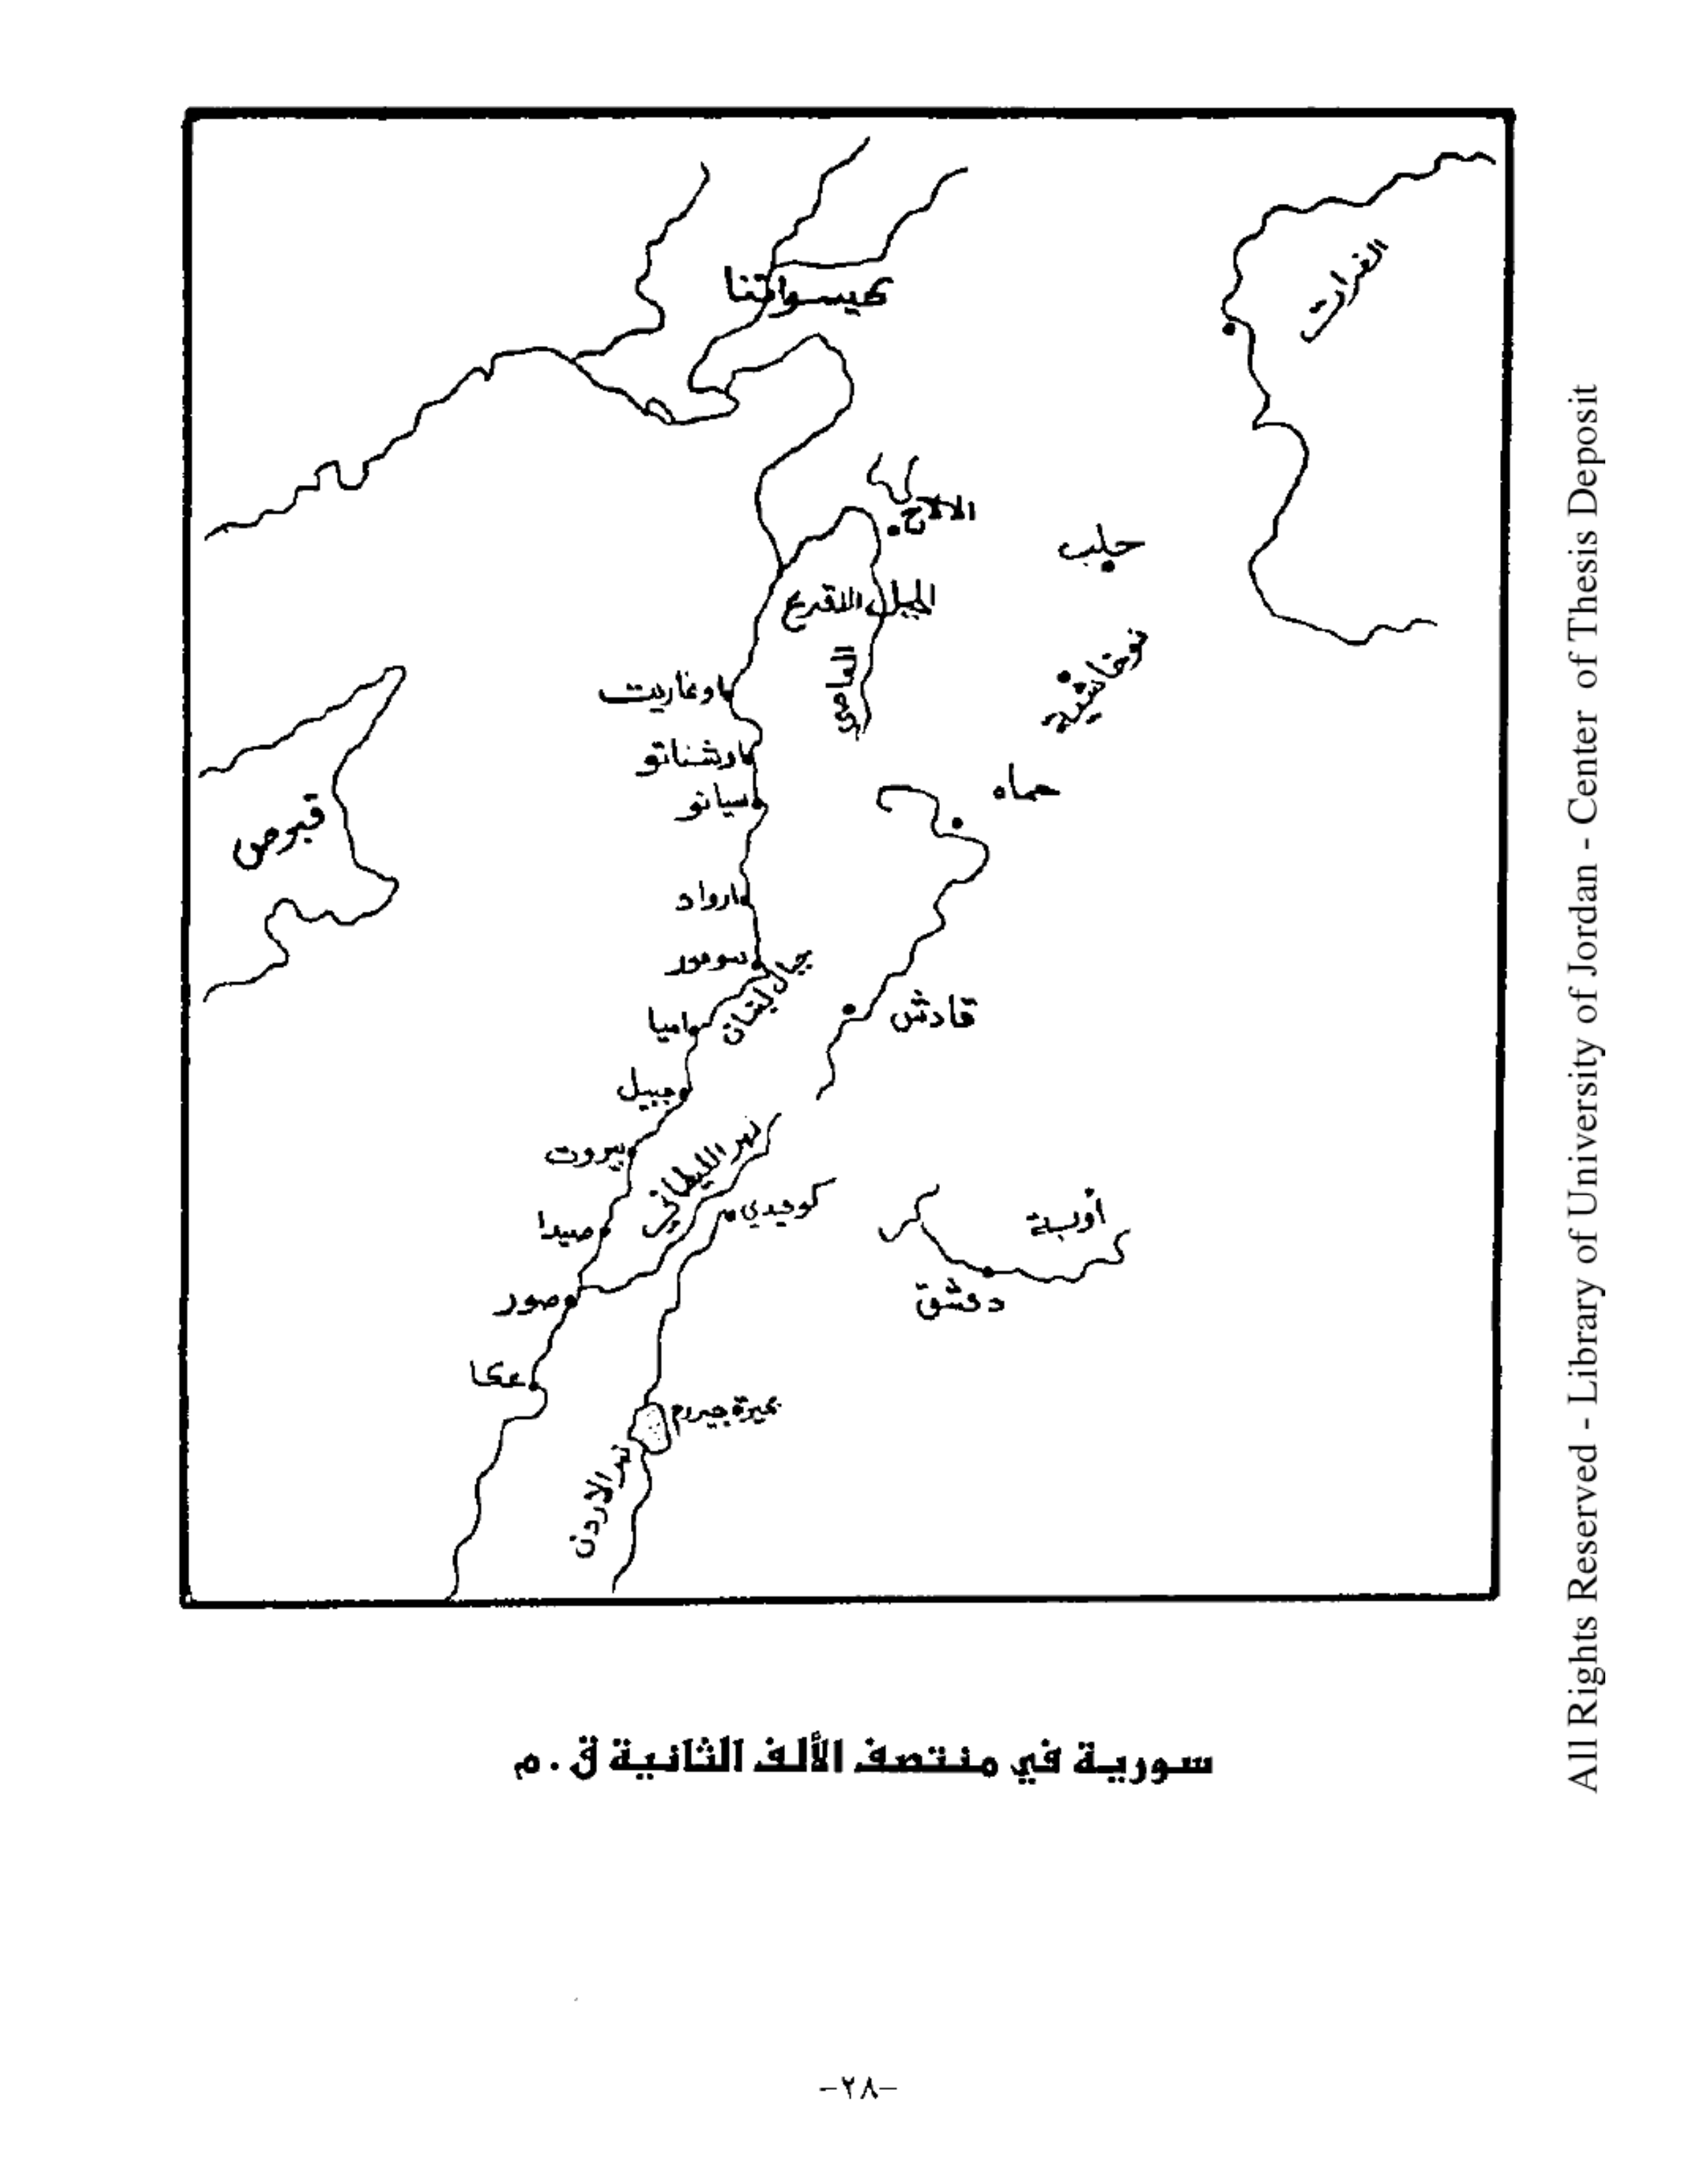 كيسواتنا
الفرات
الالاخ
حلب
الجبل الاقرع
العاصي
نوخاشيه
اوغاريت
ارشناتو
سيانو
حماه
قبرص
ارواد
سومور
جبال لبنان
قادش
اميا
جبيل
بيروت
نهر الليطاني
كوميدي
أوبة
صيدا
دمشق
صور
عكا
بحيرة جيروم
نهر الاردن
سورية في منتصف الألف الثانية ق . م
-٢٨-
All Rights Reserved - Library of University of Jordan - Center of Thesis Deposit